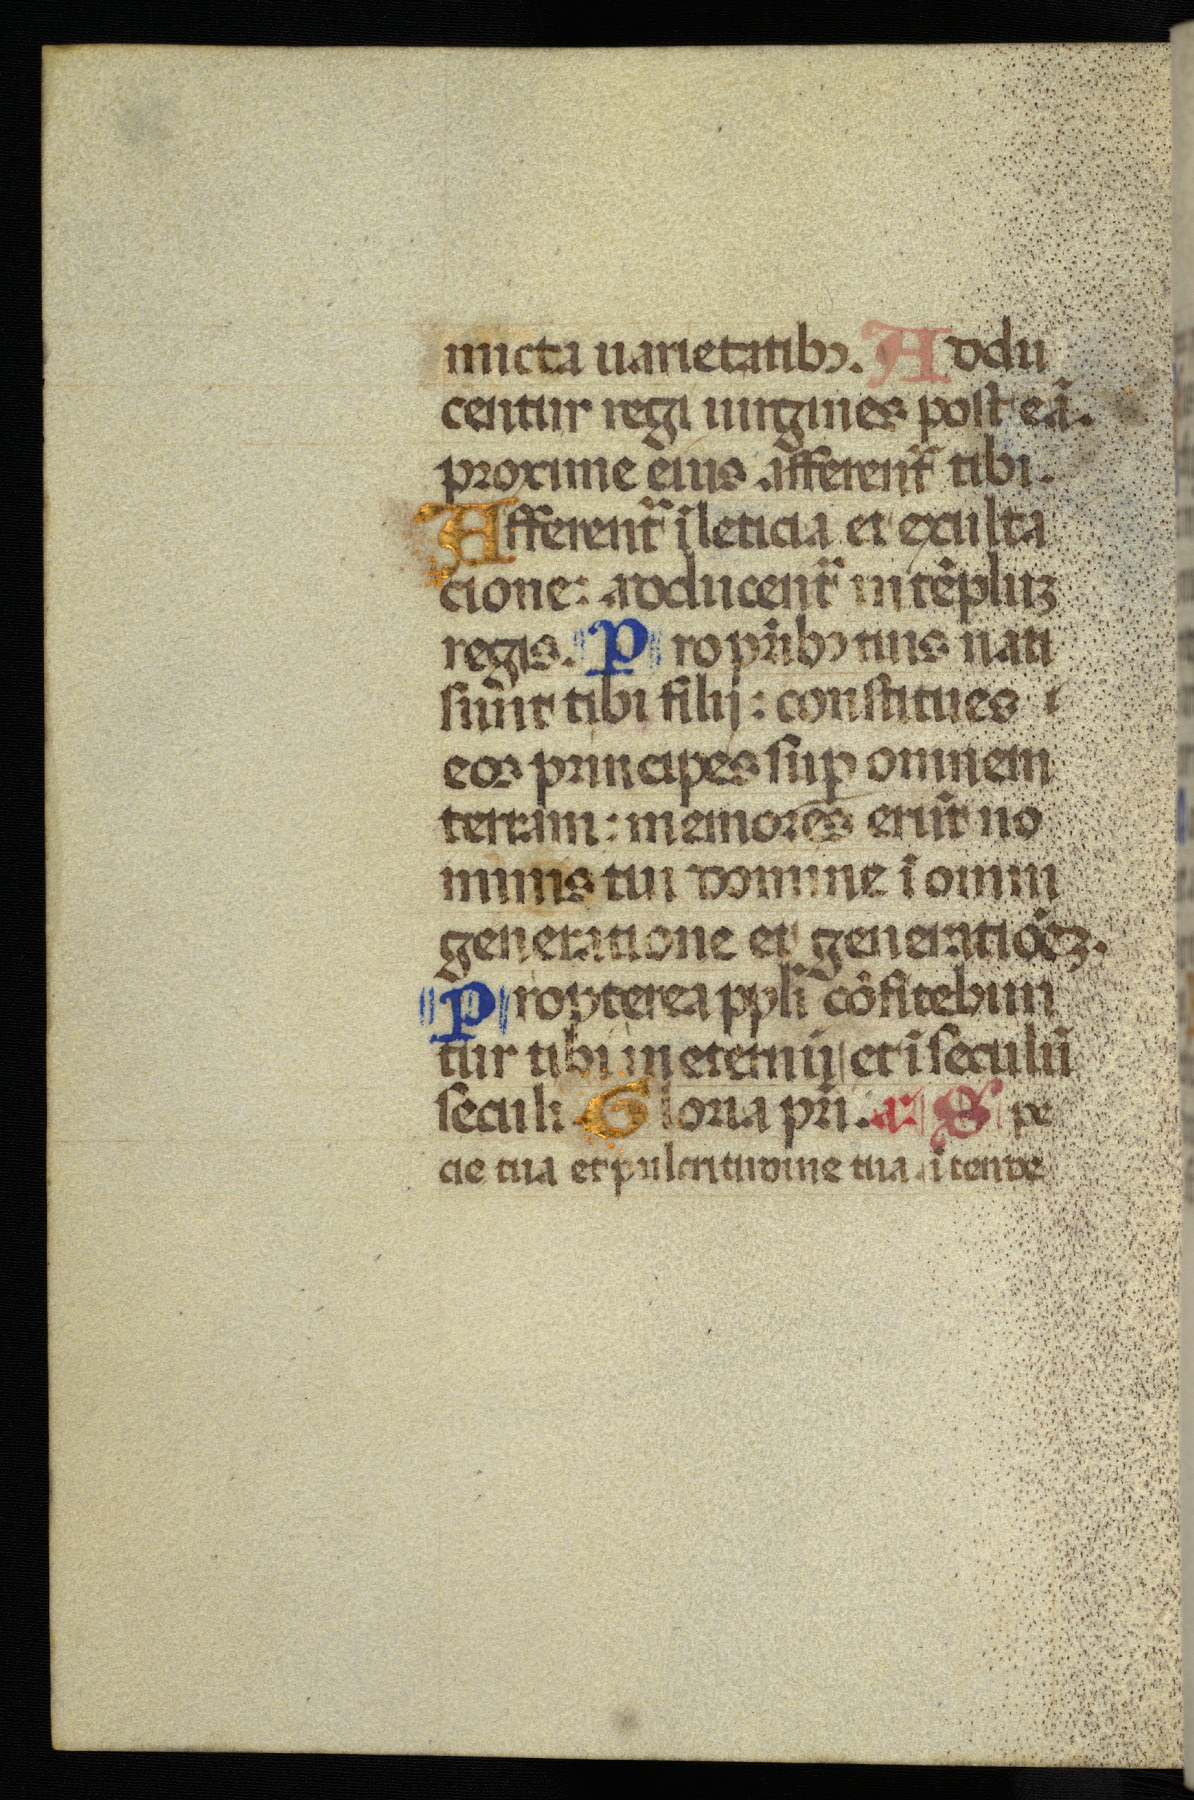 micta uarietatibꝰ. Addu
centur regi uirgines post eā.
proxime eius afferent᷑ tibi.
Afferent᷑ ī leticia et exulta
cione: adducent᷑ in tēpluꝫ
regis. Pro pr̄ibꝰ tuis nati
sunt tibi filij: constitues
eos principes suꝑ omnem
terram: memores erūt no
minis tui domine ī omni
generatione et generatiōeꝫ.
Propterea ppl̄i cōfitebun
tur tibi in eternū et ī seculū
seculi. Gloria pr̄i. a᷑. Spe
cie tua et pulcritudine tua ītende